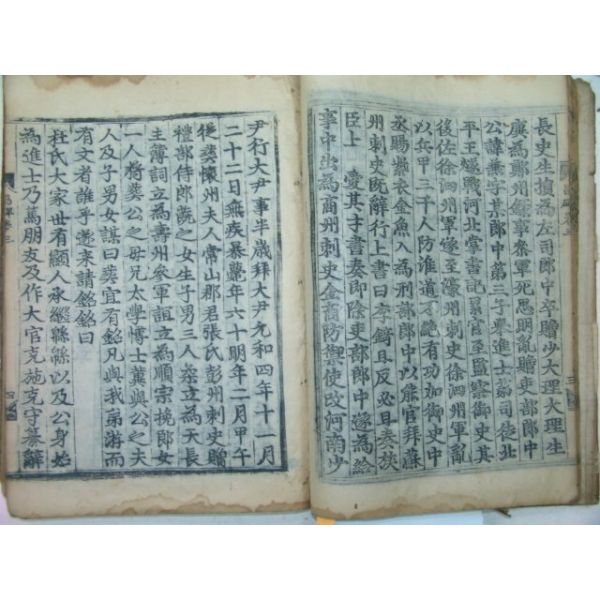 長史生損為左司郎中卒贈少大理大理生
廙為鄭州錄事參軍死思明亂贈吏部郎中
公諱兼字某郎中第三子舉進士第司徒北
平王燧戰河北掌書記累官至監察御史其
後佐徐泗州軍遂至濠州刺史徐泗州軍亂
以兵甲三千人防淮道不絶有功加御史中
丞賜紫衣金魚入為刑部郎中以能官拜蘇
州刺史既辭行上書曰李錡且反必且奏族
臣上 愛其才書奏即除吏部郎中遂為給
事中出為商州刺史金商防禦使改河南少
尹行大尹事半歲拜大尹元和四年十一月
二十二日無疾暴薨年六十明年二月甲午
從葬懷州夫人常山郡君張氏彭州刺史贈
禮部侍郎蔇之女生子男三人柔立為天長
主簿詞立為壽州參軍誼立為順宗挽郎女
一人將葬公之母兄太學博士冀與公之夫
人及子男女謀曰葬宜有銘凡與我弟游而
有文者誰乎遂來請銘銘曰
杜氏大家世有顯人承繼緜緜以及公身始
為進士乃篤朋友及作大官克施克守纂辭